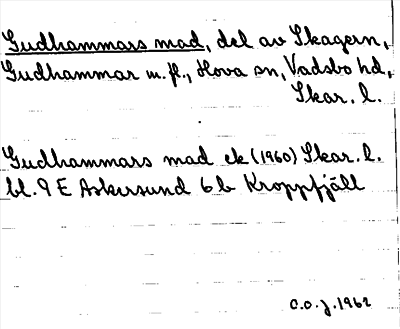 Gudhammars mad, del av Skagern,
Gudhammar m.fl., Hova sn, Vadsbo hd,
Skar. l.
Gudhammars mad ek (1960) Skar. l.
bl. 9 E Askersund 6 b Kroppfjäll
C.O.J. 1962